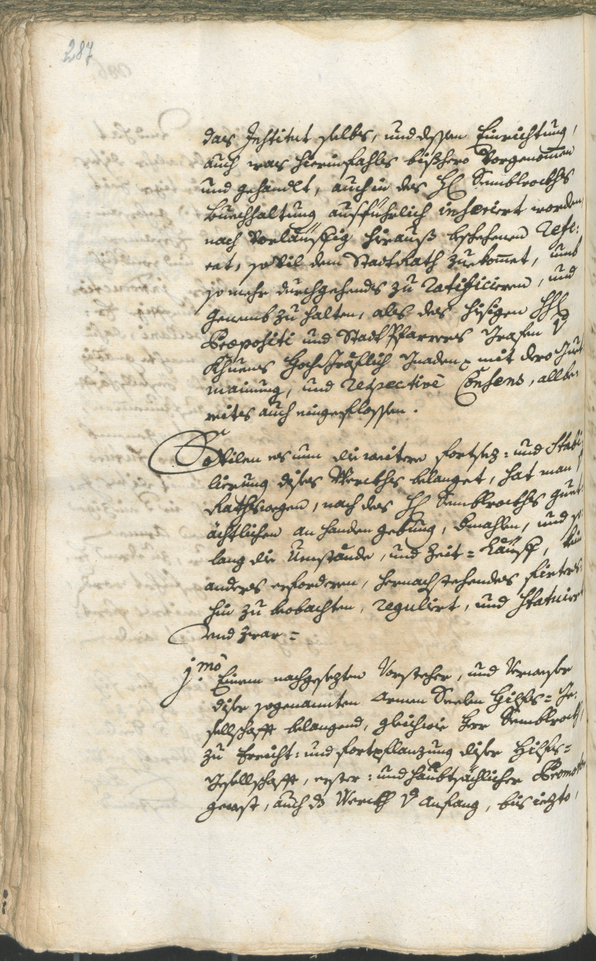 287
das Institut selbs, und dessen Einrichtung,
auch was hierinfahls bishero vorgenommen
und gehandlt, auch in des H: Semblrockhs
Buechhaltung ausführlich inserirt worden
nach vorläuffig hierauß beschehenen Refe-
rat, so vil dem Stadt Rath zuekommet, umb
so mehr durchgehends zu ratificieren, und
genemb zu halten, als des hiesigen
Præpositi und Statt Pfarrers Grafen v
Khuens Hochgräflich Gnaden mit dero Guet
mainung, und respectivè Consens, allbe-
reits auch eingeflossen.
Sovilen es nun die weitere fortsez- und Stabi
lierung dises Werckhs belanget, hat man
Rathswegen, nach des H: Semblrockhs guet
ächtlichen an handen gebung, demahlen, und so
lang die Umstände, und Zeit-Läuff, kein
anderes erforderen, hernach stehendes fürters
hin zu beobachten, regulirt, und Statuirt
und zwar:
j.mo Einem nachgesezten Vorsteher, und Verwalter
diser sogenannten Armen Seelen Hilfs- Ge-
sellschafft belangend, gleichwie Herr Semblrock
zu Erricht- und fortpflanzung diser Hilfs-
Gesellschafft, erster- und haubtsächlicher Promotor
gewest, auch ds Werckh v Anfang, bis iezto,